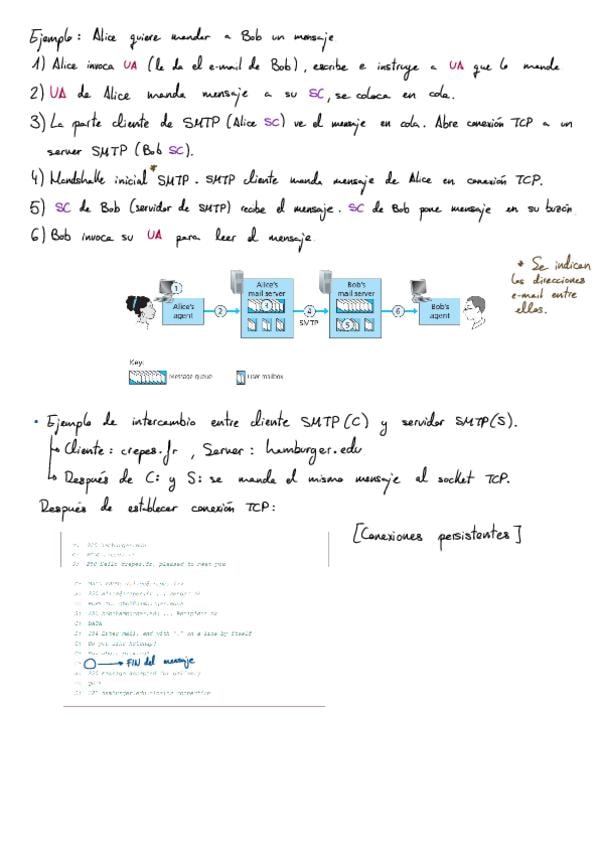 Ejemplo: Alice quiere mandar a Bob un mensaje.
1) Alice invoca UA (le da el e-mail de Bob), escribe e instruye a UA que lo mande.
2) UA de Alice manda mensaje a su SC, se coloca en cola.
3) La parte cliente de SMTP (Alice SC) ve el mensaje en cola. Abre conexión TCP a un
server SMTP (Bob SC).
4) Handshake inicial * SMTP. SMTP cliente manda mensaje de Alice en conexión TCP.
5) SC de Bob (servidor de SMTP) recibe el mensaje. SC de Bob pone mensaje en su buzón.
6) Bob invoca su UA para leer el mensaje.
* Se indican
las direcciones
e-mail entre
ellos.
1
Alice's
agent
2
Alice's
mail server
3
4
SMTP
Bob's
mail server
5
6
Bob's
agent
Key:
Message queue
User mailbox
• Ejemplo de intercambio entre cliente SMTP (C) y servidor SMTP (S).
Cliente: crepes.fr, Server: hamburger.edu
Después de C: y S: se manda el mismo mensaje al socket TCP.
Después de establecer conexión TCP:
[Conexiones persistentes]
S: 220 hamburger.edu
S: 250 Hello crepes.fr, pleased to meet you
C: DATA
S: 354 Enter mail, end with "." on a line by itself
C: Do you like ketchup?
→ FIN del mensaje
S: 250 Message accepted for delivery
C: QUIT
S: 221 hamburger.edu closing connection